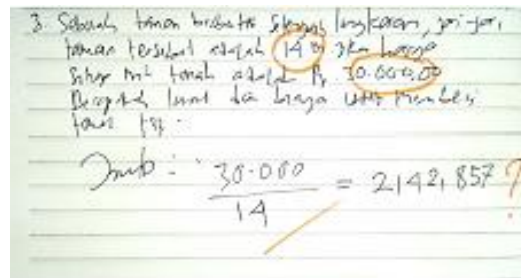 3. Sebuah taman berbentuk setengah lingkaran, jari-jari
taman tersebut adalah 14 m jika harga
Setiap m² tanah adalah Rp 30.000,00
Berapakah luas dan biaya untuk membeli
taman tsb.
Jawab : 30.000 / 14 = 2142,857 ?